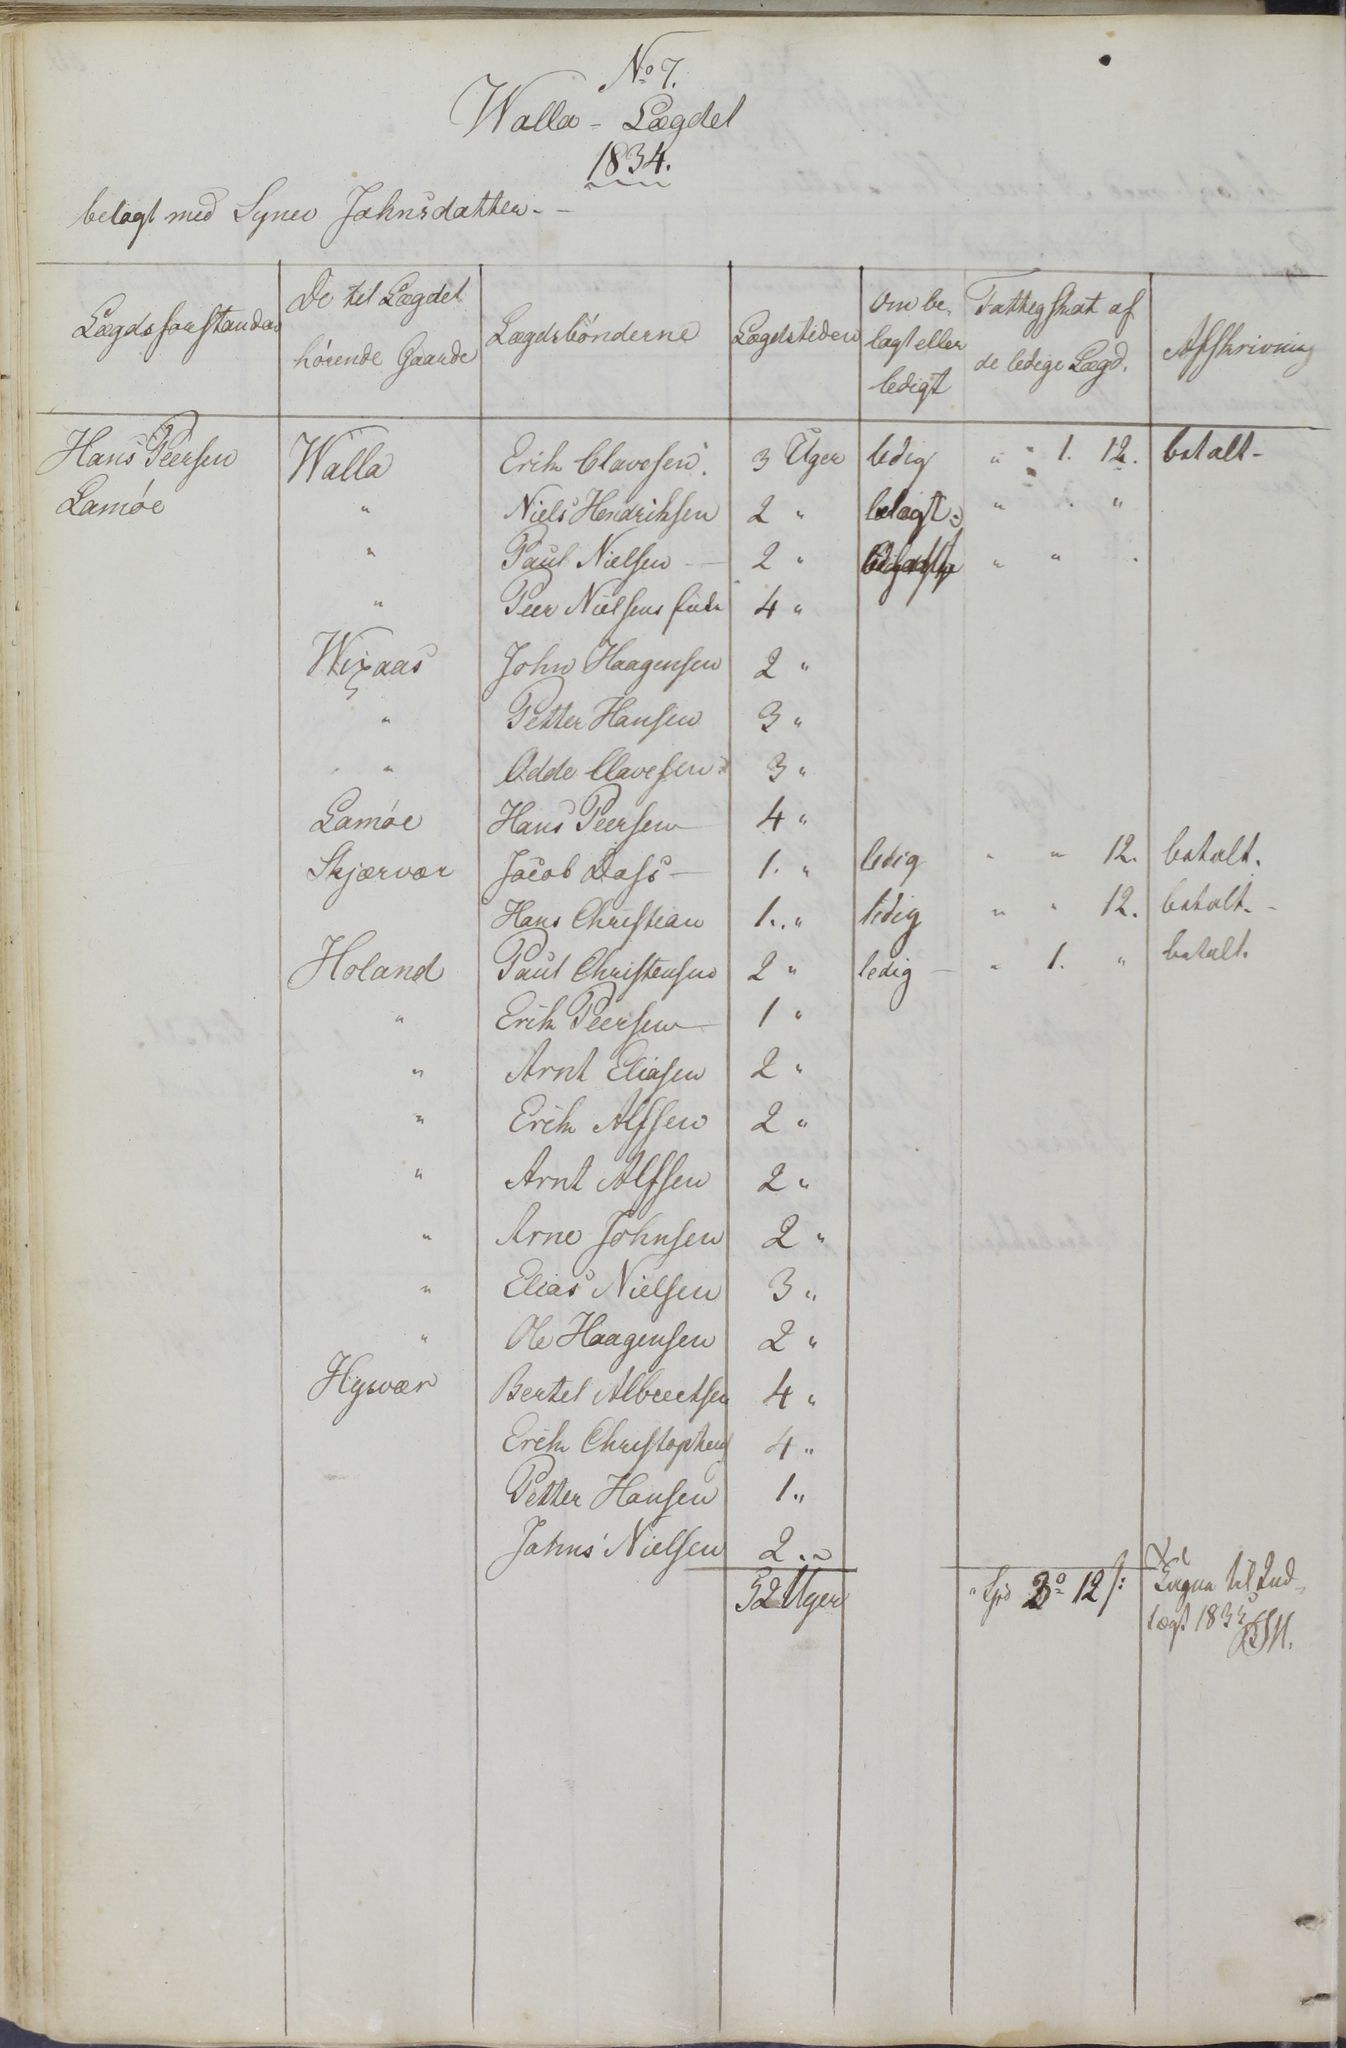 No 7.
Walla - Lægdet
1834.
belagt med Synev Jahnsdatter. -
Lægdsforstander | De til Lægdet hørende Gaarde | Lægdsbønderne | Lægdstiden | Om belagt eller ledigt | Fattigskat af de ledige Lægd. | Afskrivning
Hans Peersen | Walla | Erik Clavesen. | 3 Uger | ledig | " - 1. 12. | betalt -
Lamøe | " | Niels Hendriksen | 2 " | belagt | " . "
" | Paul Nielsen - | 2 " | " " .
" | Peer Nielsens | 4 "
Wixaas | John Haagensen | 2 "
" | Petter Hansen | 3 "
" | Odde Clavesen | 3 "
Lamøe | Hans Peersen | 4 "
Skjærvær | Jacob Dass - | 1. " | ledig | " " 12. | betalt.
Hans Christian | 1. " | ledig | " " 12. | betalt. -
Holand | Paul Christensen | 2 " | ledig - | " 1. " | betalt.
" | Erik Peersen | 1 "
" | Arnt Eliasen | 2 "
" | Erik Alfsen | 2 "
" | Arnt Alfsen | 2 "
" | Arne Johnsen | 2 "
" | Elias Nielsen | 3 "
" | Ole Haagensen | 2 "
Hysvær | Bertel Albrectsen | 4 "
Erik Christophers | 4 "
Petter Hansen | 1 "
Jahns Nielsen | 2 "
52 Uger | " Spd 12 s: | til Ind-
tægt 1835